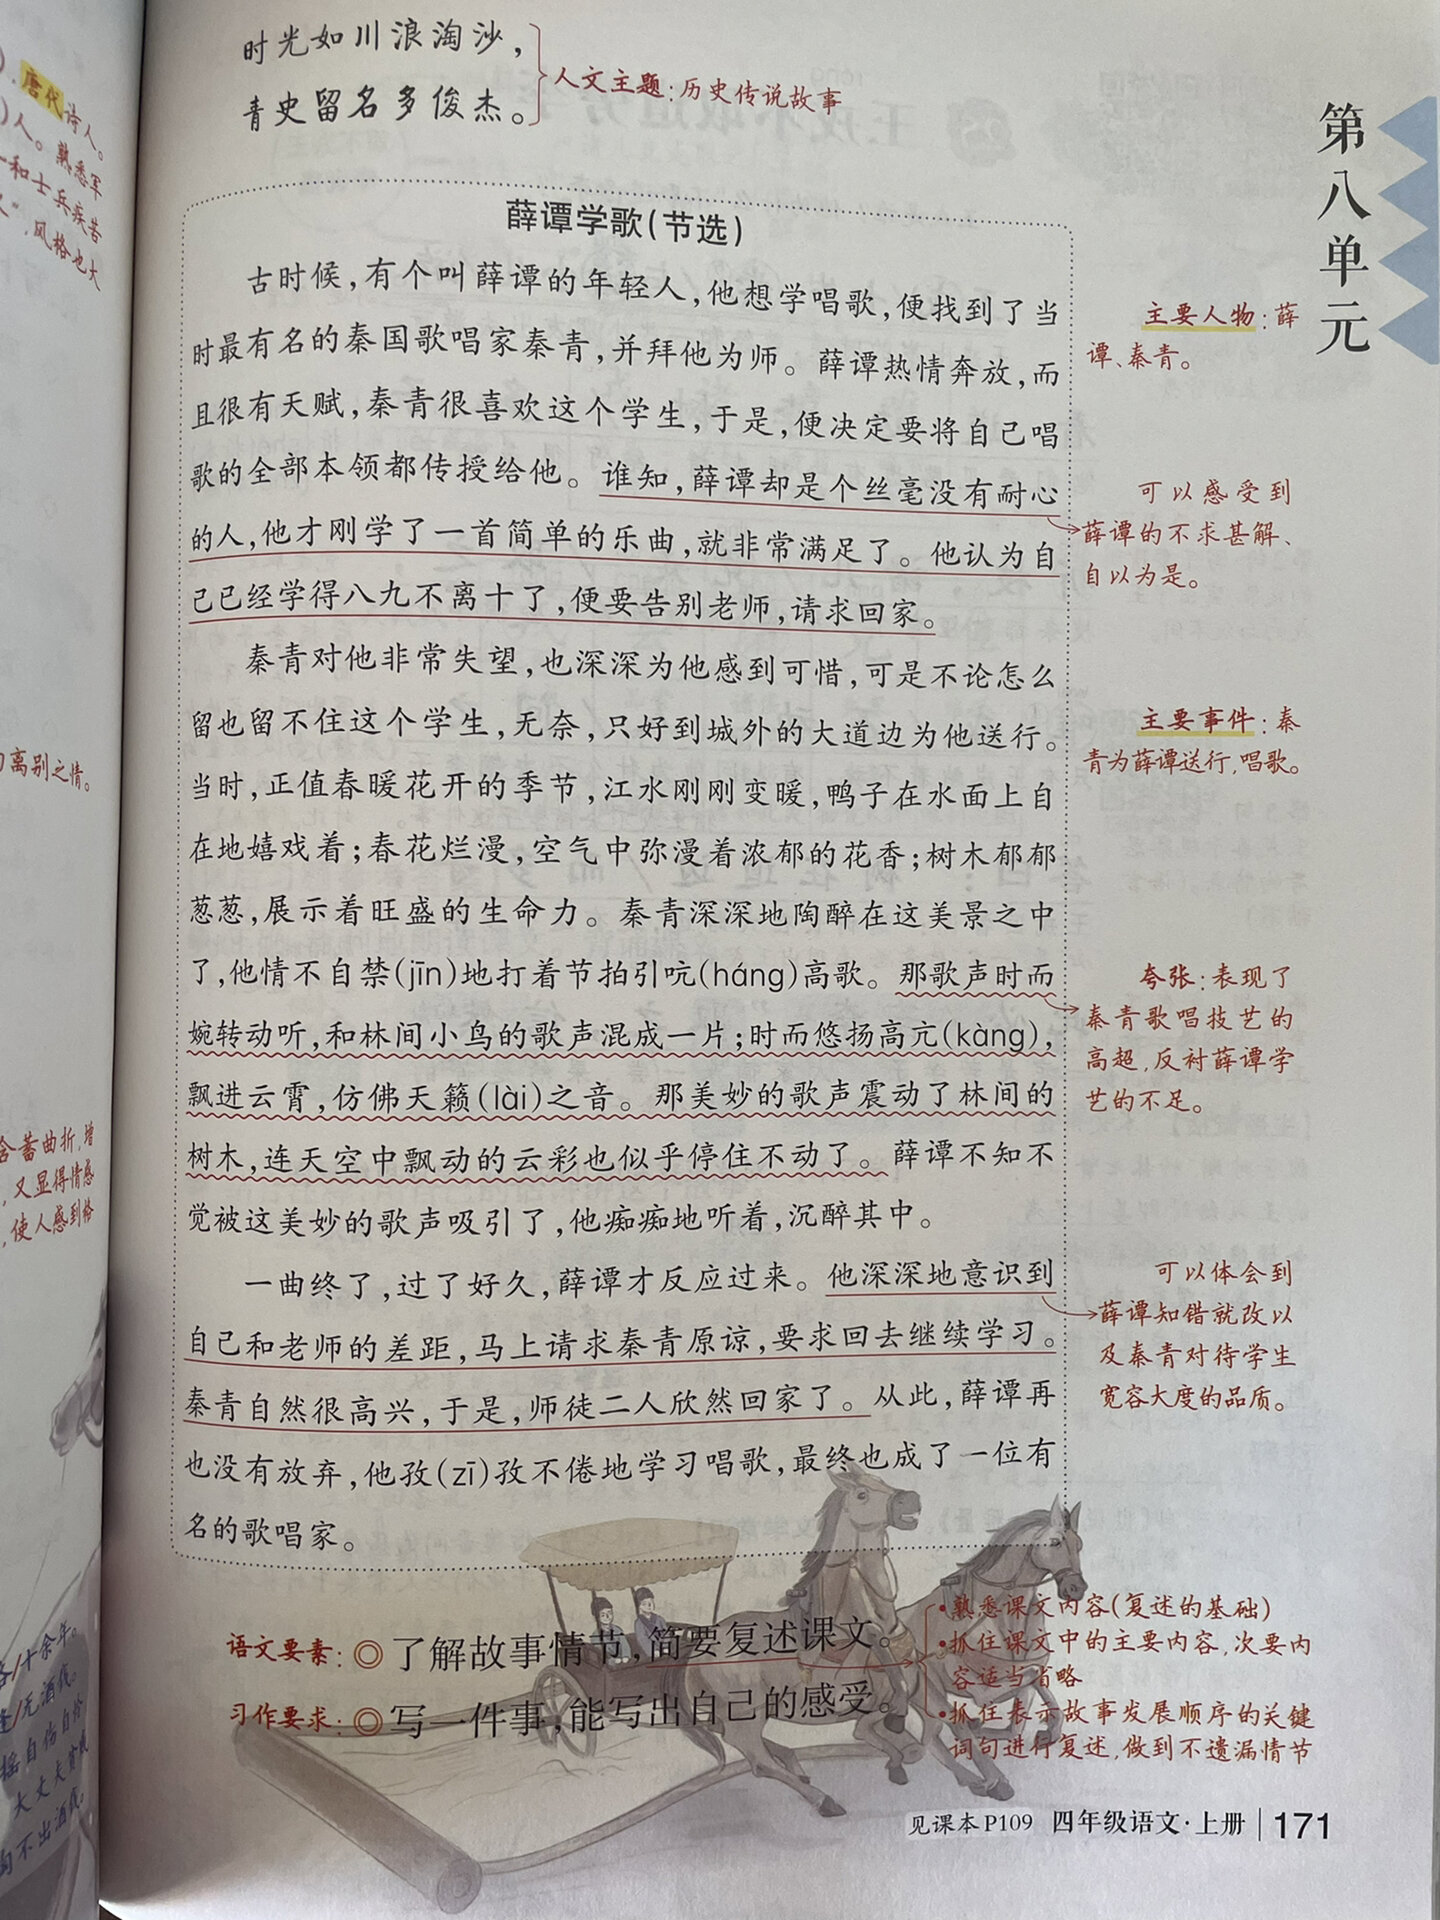 时光如川浪淘沙，
青史留名多俊杰。
人文主题：历史传说故事
第八单元
薛谭学歌（节选）
古时候，有个叫薛谭的年轻人，他想学唱歌，便找到了当
时最有名的秦国歌唱家秦青，并拜他为师。薛谭热情奔放，而
且很有天赋，秦青很喜欢这个学生，于是，便决定要将自己唱
歌的全部本领都传授给他。谁知，薛谭却是个丝毫没有耐心
的人，他才刚学了一首简单的乐曲，就非常满足了。他认为自
己已经学得八九不离十了，便要告别老师，请求回家。
秦青对他非常失望，也深深为他感到可惜，可是不论怎么
留也留不住这个学生，无奈，只好到城外的大道边为他送行。
当时，正值春暖花开的季节，江水刚刚变暖，鸭子在水面上自
在地嬉戏着；春花烂漫，空气中弥漫着浓郁的花香；树木郁郁
葱葱，展示着旺盛的生命力。秦青深深地陶醉在这美景之中
了，他情不自禁(jīn)地打着节拍引吭(háng)高歌。那歌声时而
婉转动听，和林间小鸟的歌声混成一片；时而悠扬高亢(kàng)，
飘进云霄，仿佛天籁(lài)之音。那美妙的歌声震动了林间的
树木，连天空中飘动的云彩也似乎停住不动了。薛谭不知不
觉被这美妙的歌声吸引了，他痴痴地听着，沉醉其中。
一曲终了，过了好久，薛谭才反应过来。他深深地意识到
自己和老师的差距，马上请求秦青原谅，要求回去继续学习。
秦青自然很高兴，于是，师徒二人欣然回家了。从此，薛谭再
也没有放弃，他孜(zī)孜不倦地学习唱歌，最终也成了一位有
名的歌唱家。
主要人物：薛
谭、秦青。
可以感受到
薛谭的不求甚解、
自以为是。
主要事件：秦
青为薛谭送行，唱歌。
夸张：表现了
秦青歌唱技艺的
高超，反衬薛谭学
艺的不足。
可以体会到
薛谭知错就改以
及秦青对待学生
宽容大度的品质。
语文要素：◎了解故事情节，简要复述课文。
习作要求：◎写一件事，能写出自己的感受。
•熟悉课文内容（复述的基础）
•抓住课文中的主要内容，次要内
容适当省略
•抓住表示故事发展顺序的关键
词句进行复述，做到不遗漏情节
见课本P109 四年级语文·上册 | 171
唐代诗人。
)人。熟悉军
和士兵疾苦
，风格也大
离别之情。
含蓄曲折，增
，又显得情感
，使人感到格
十余年。
无酒钱。
摇自伤自怜
大丈夫贫贱
不出酒钱。